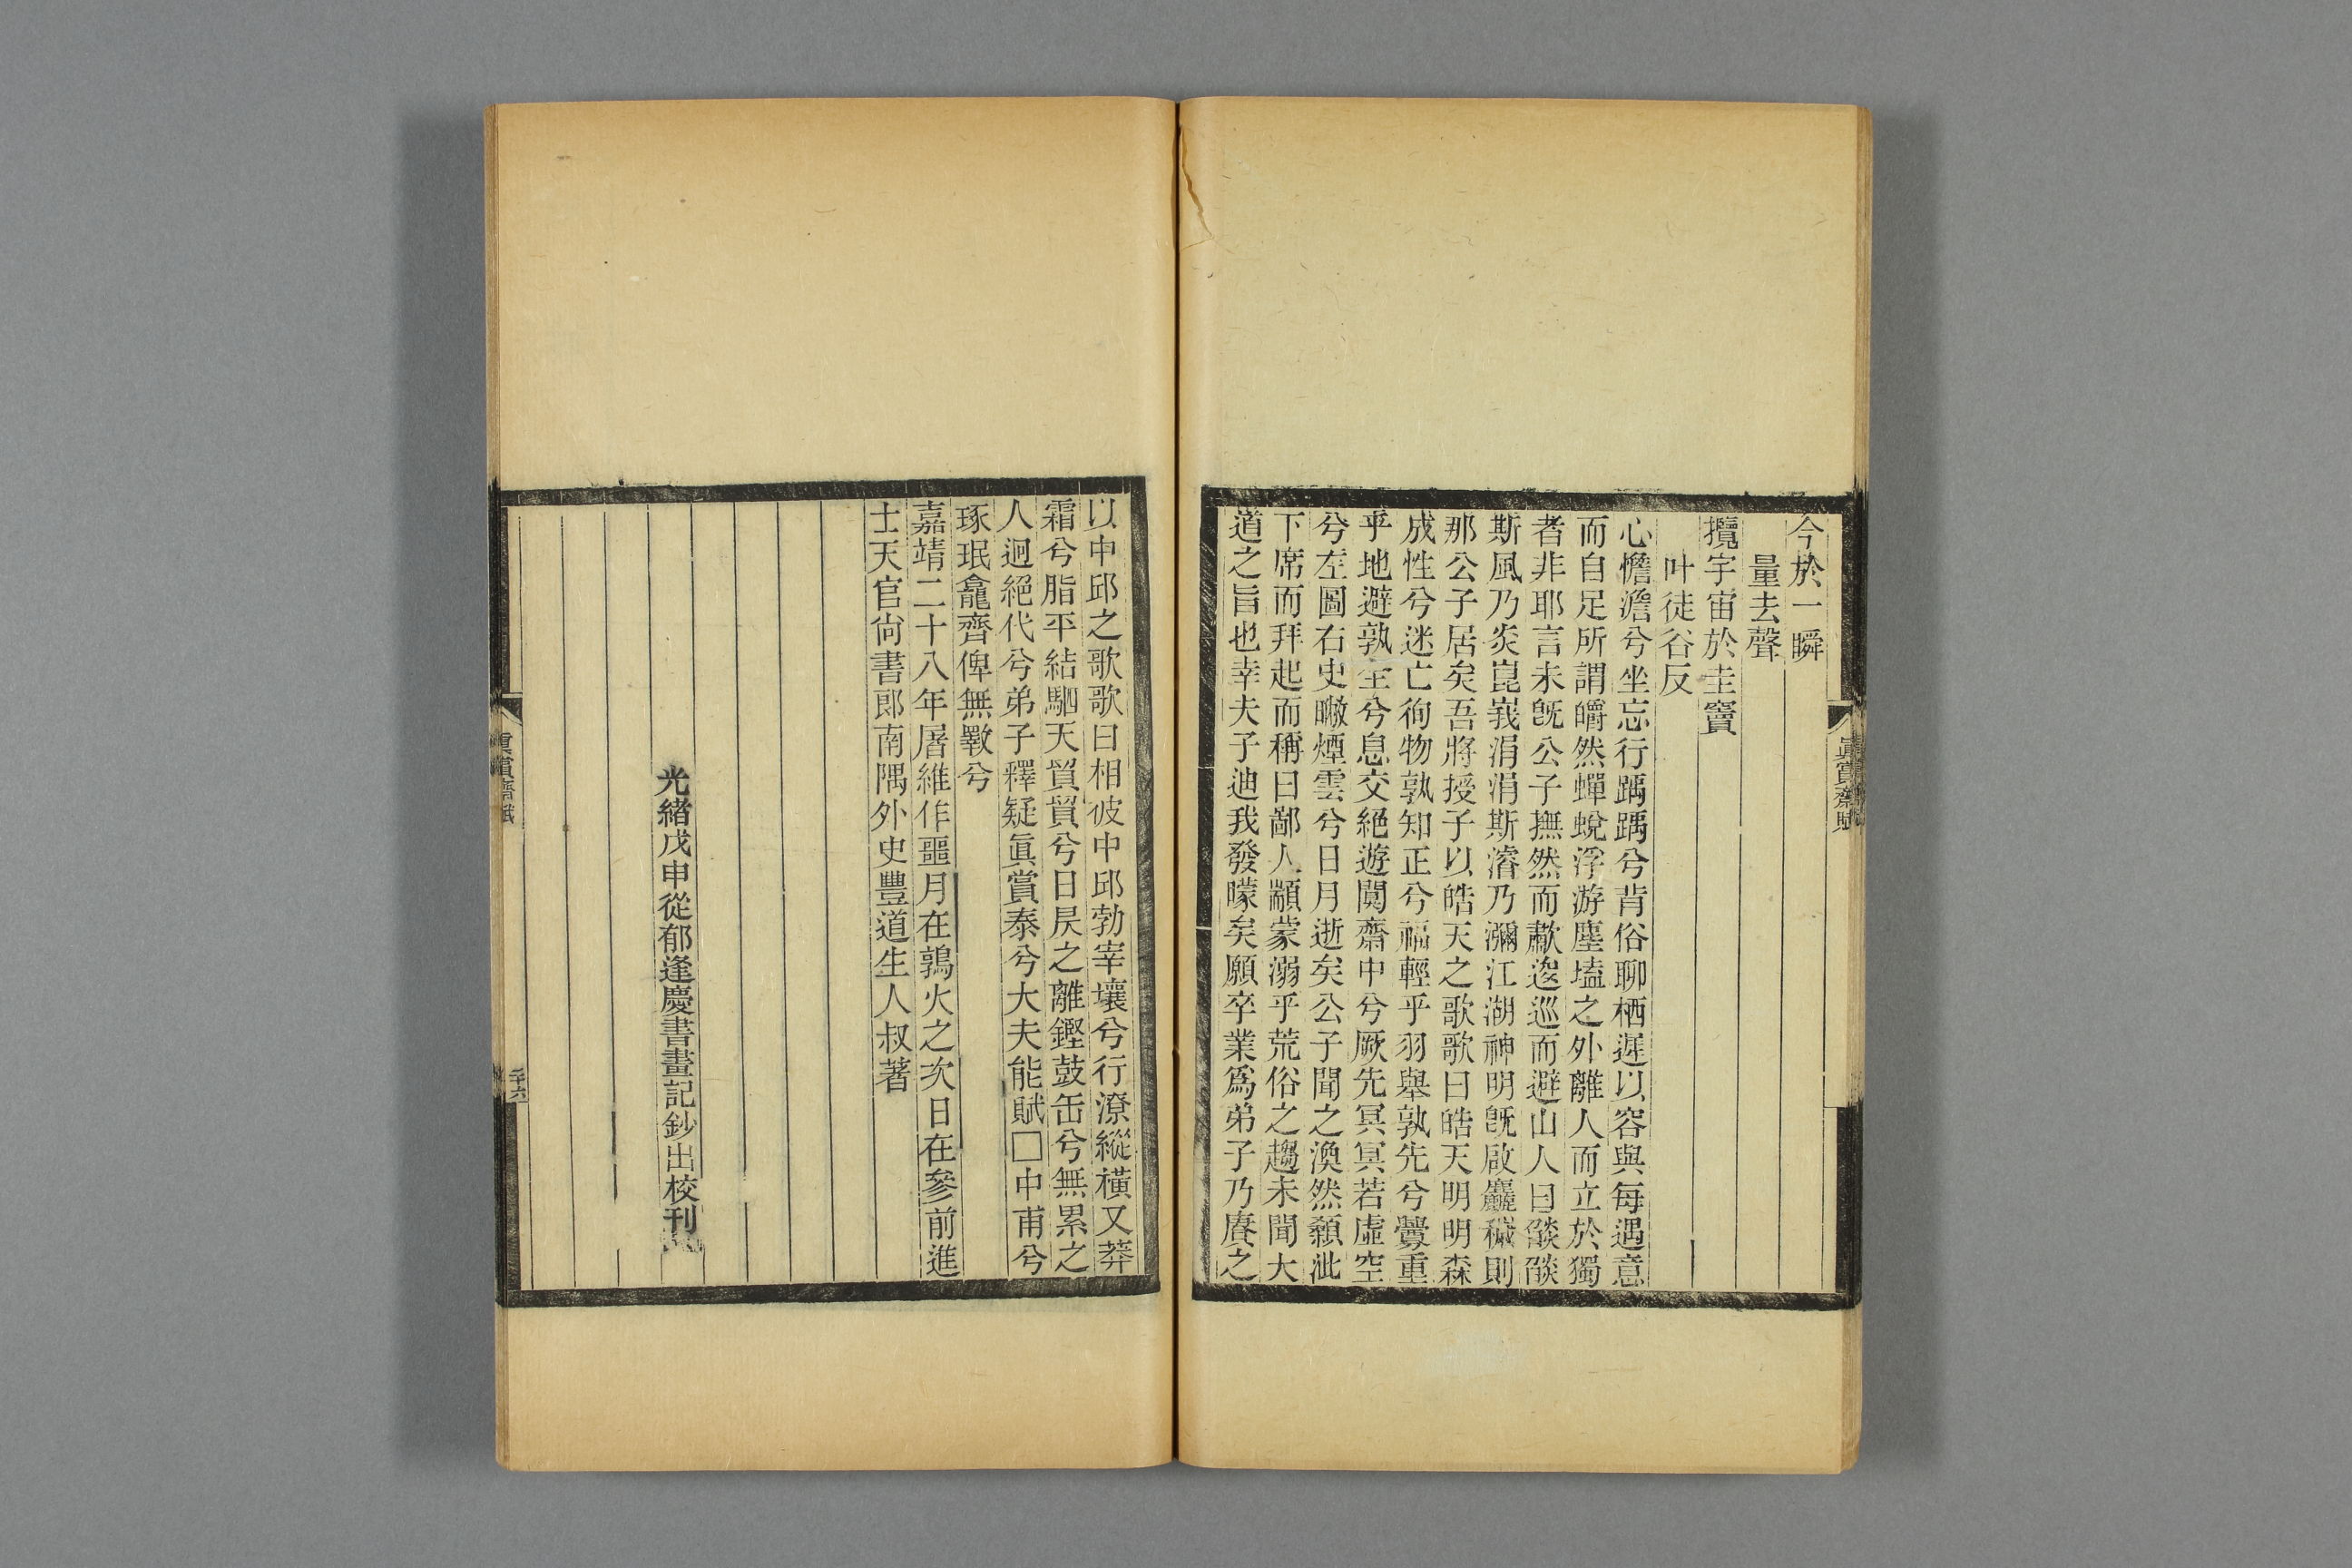 今於一瞬
量去聲
攬宇宙於圭竇
叶徒谷反
心憺澹兮坐忘行踽踽兮背俗聊栖遲以容與每遇意
而自足所謂皭然蟬蛻浮游塵壒之外離人而立於獨
者非耶言未旣公子撫然而歉逡巡而避山人曰
斯風乃炎崑峩涓涓斯濬乃瀰江湖神明旣啟麤穢則
那公子居矣吾將授子以皓天之歌歌曰皓天明明森
成性兮迷亡徇物孰知正兮福輕乎羽舉孰先兮釁重
乎地避孰全兮息交絕遊閴齋中兮厥先冥冥若虛空
兮左圖右史暾煙雲兮日月逝矣公子聞之渙然顙泚
下席而拜起而稱曰鄙人顓蒙溺乎荒俗之趨未聞大
道之旨也幸夫子迪我發矇矣願卒業爲弟子乃賡之
以中邱之歌歌曰相彼中邱勃崒壤兮行潦縱橫又莽
霜兮脂平結駟天貿貿兮日昃之離鏗鼓缶兮無累之
人迥絕代兮弟子釋疑眞賞泰兮大夫能賦□中甫兮
琢珉龕齊俾無斁兮
嘉靖二十八年屠維作噩月在鶉火之次日在參前進
士天官尙書郞南隅外史豐道生人叔著
光緖戊申從郁逢慶書畫記鈔出校刊
眞賞齋賦
眞賞齋賦
二十六